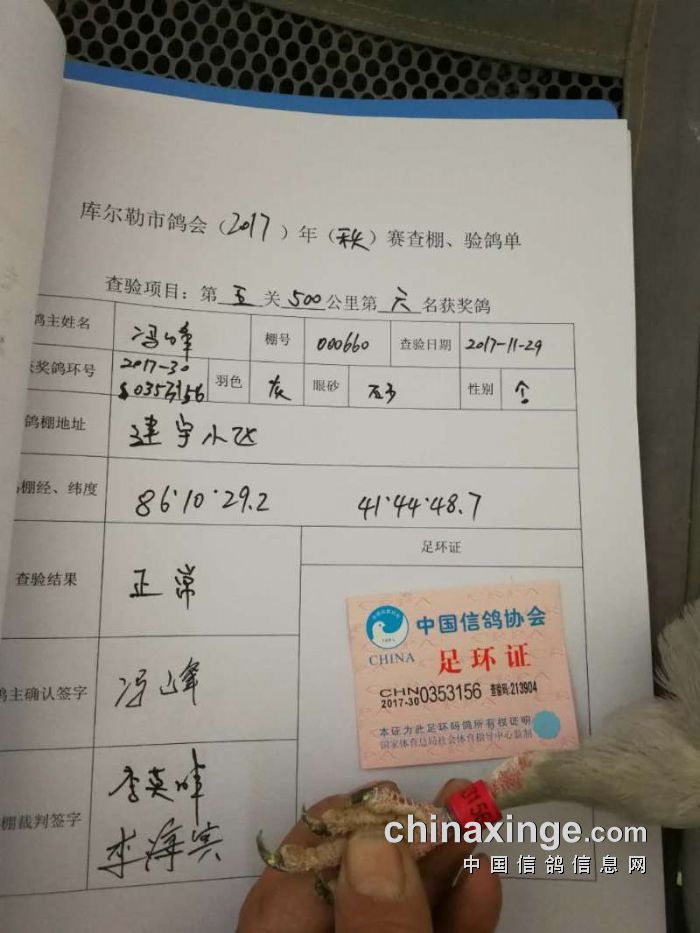 库尔勒市鸽会（2017）年（秋）赛查棚、验鸽单
查验项目：第 五 关 500 公里第 六 名获奖鸽
鸽主姓名 冯峰 棚号 000660 查验日期 2017-11-29
获奖鸽环号 2017-30 0353156 羽色 灰 眼砂 性别
鸽棚地址 建宇小
棚经、纬度 86·10·29.2 41·44·48.7
查验结果 正常 足环证
鸽主确认签字 冯峰
棚裁判签字 李英
李海
中国信鸽协会
CHINA 足环证
CHN 2017-30 0353156 查验码:213904
本证为此足环码鸽所有权证明
国家体育总局社会体育指导中心监制
chinaxinge.com
中国信鸽信息网